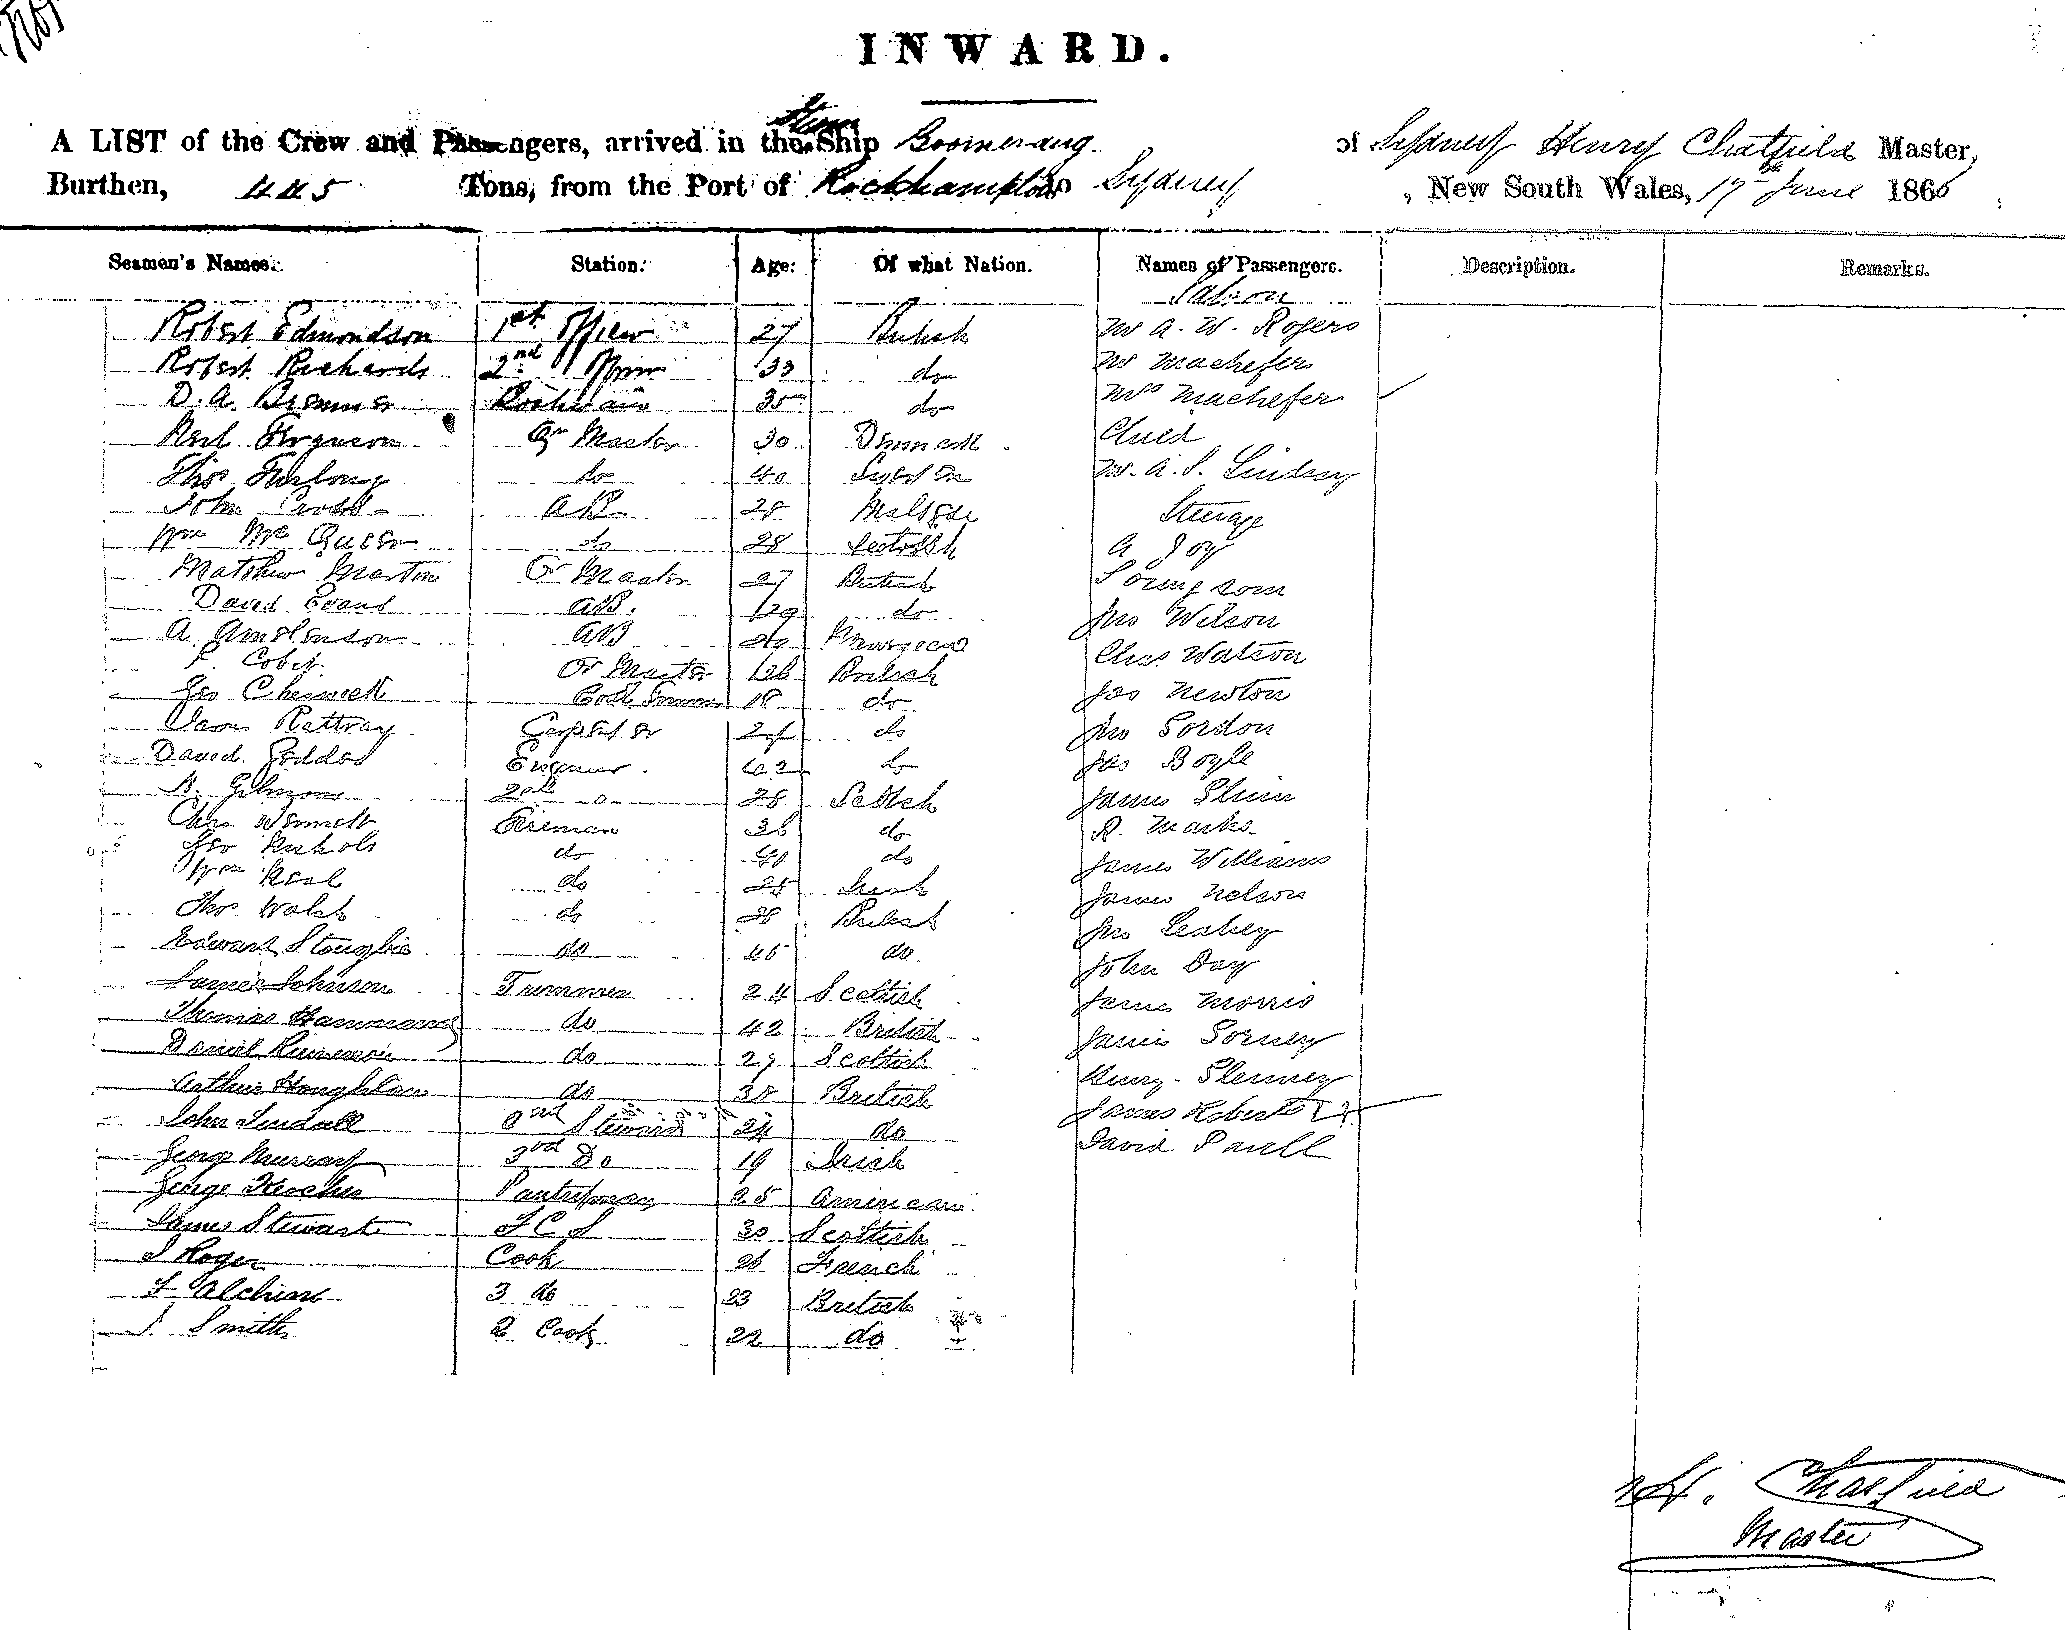 INWARD.
Steam
A LIST of the Crew and Passengers, arrived in the Ship Boomerang of Sydney Henry Chatfield Master,
Burthen, 445 Tons, from the Port of Rockhampton to Sydney, New South Wales, 17th June 1866
Seamen's Names. Station. Age. Of what Nation. Names of Passengers. Description. Remarks.
Saloon
Robert Edmondson 1st Officer 27 British Mr A. W. Rogers
Robert Richards 2nd Officer 33 do Mr Machefer
D. A. Bremner 35 do Mrs Machefer
Neil Ferguson Qr Master 30 Denmark Child
Thos Furlong do 40 Sweden Mr. A. S. Lindsay
John AB 28 Maltese Steerage
Wm McQueen do 28 Scottish A Joy
Matthew Martin Qr Master 27 British
David Evans AB. 29 do Jno Wilson
A. AB Norwegian Chas Watson
Cobet Qr Master 26 British Jas Newton
Geo 18 do Jno Gordon
Rattray Carpenter do Jas Boyle
David Geddes Engineer 42 do James
Gilmour 2nd do 28 Scottish R. Marks
Chas Fireman 36 do James Williams
Geo Nichols do 40 do James Nelson
Wm Neal do 28 Irish Jno
Thos Walsh do 28 British John Day
Edward do 45 do James Morris
James Johnson Trimmer 24 Scottish James
Thomas Hammond do 42 British Henry
Daniel do 27 Scottish James Roberts
Arthur Houghton do 38 British David Paull
John Tindall 2nd Steward 24 do
George Murray 3rd Do 19 Irish
George Kercher Pantryman 25 American
James Stewart F C S 30 Scottish
J Roger Cook 26 French
F Alchin 3 do 23 British
J. Smith 2 Cook 22 do
H. Chatfield
Master